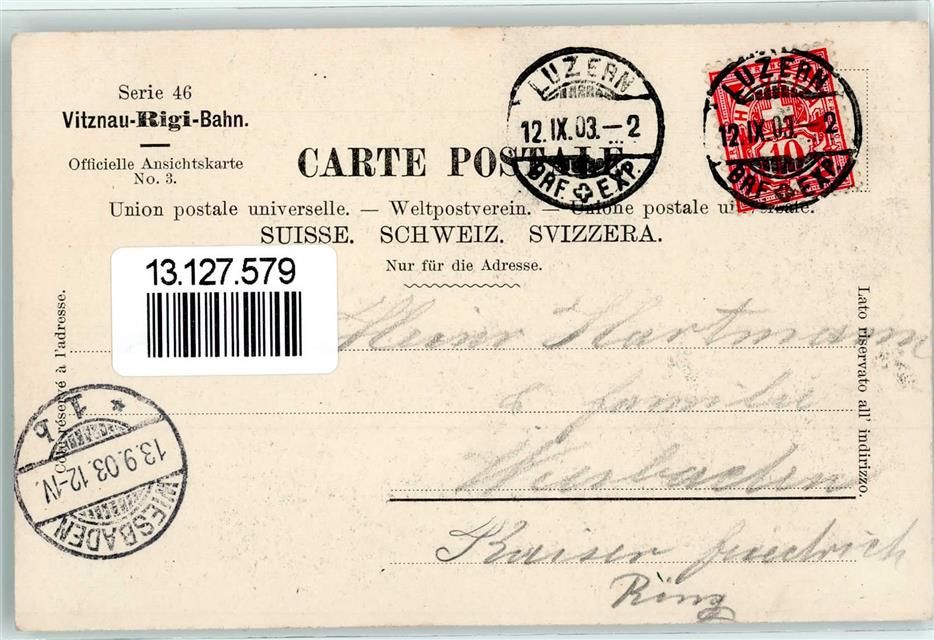 Serie 46
Vitznau-Rigi-Bahn.
Officielle Ansichtskarte
No. 3.
LUZERN
12.IX.03.–2
BRF EXP.
LUZERN
12.IX.03.–2
BRF EXP.
10
CARTE POSTALE
Union postale universelle. — Weltpostverein. — Unione postale universale.
SUISSE. SCHWEIZ. SVIZZERA.
Nur für die Adresse.
13.127.579
Côté réservé à l'adresse.
Lato riservato all' indirizzo.
Heinr Hartmann
& familie
Wiesbaden
Kaiser friedrich
Ring
* 1 b
13.9.03.12-1V.
WIESBADEN